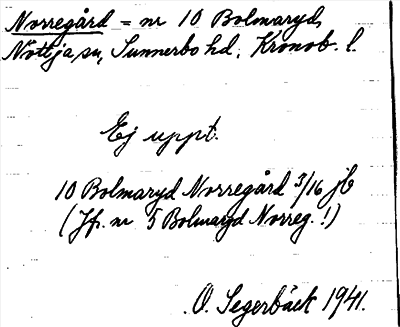 Norregård = nr 10 Bolmaryd,
Nöttja sn, Sunnerbo hd. Kronob. l.
Ej uppt.
10 Bolmaryd Norregård 3/16 jb
(Jfr. nr 5 Bolmaryd Norreg. !)
O. Segerbäck 1941.